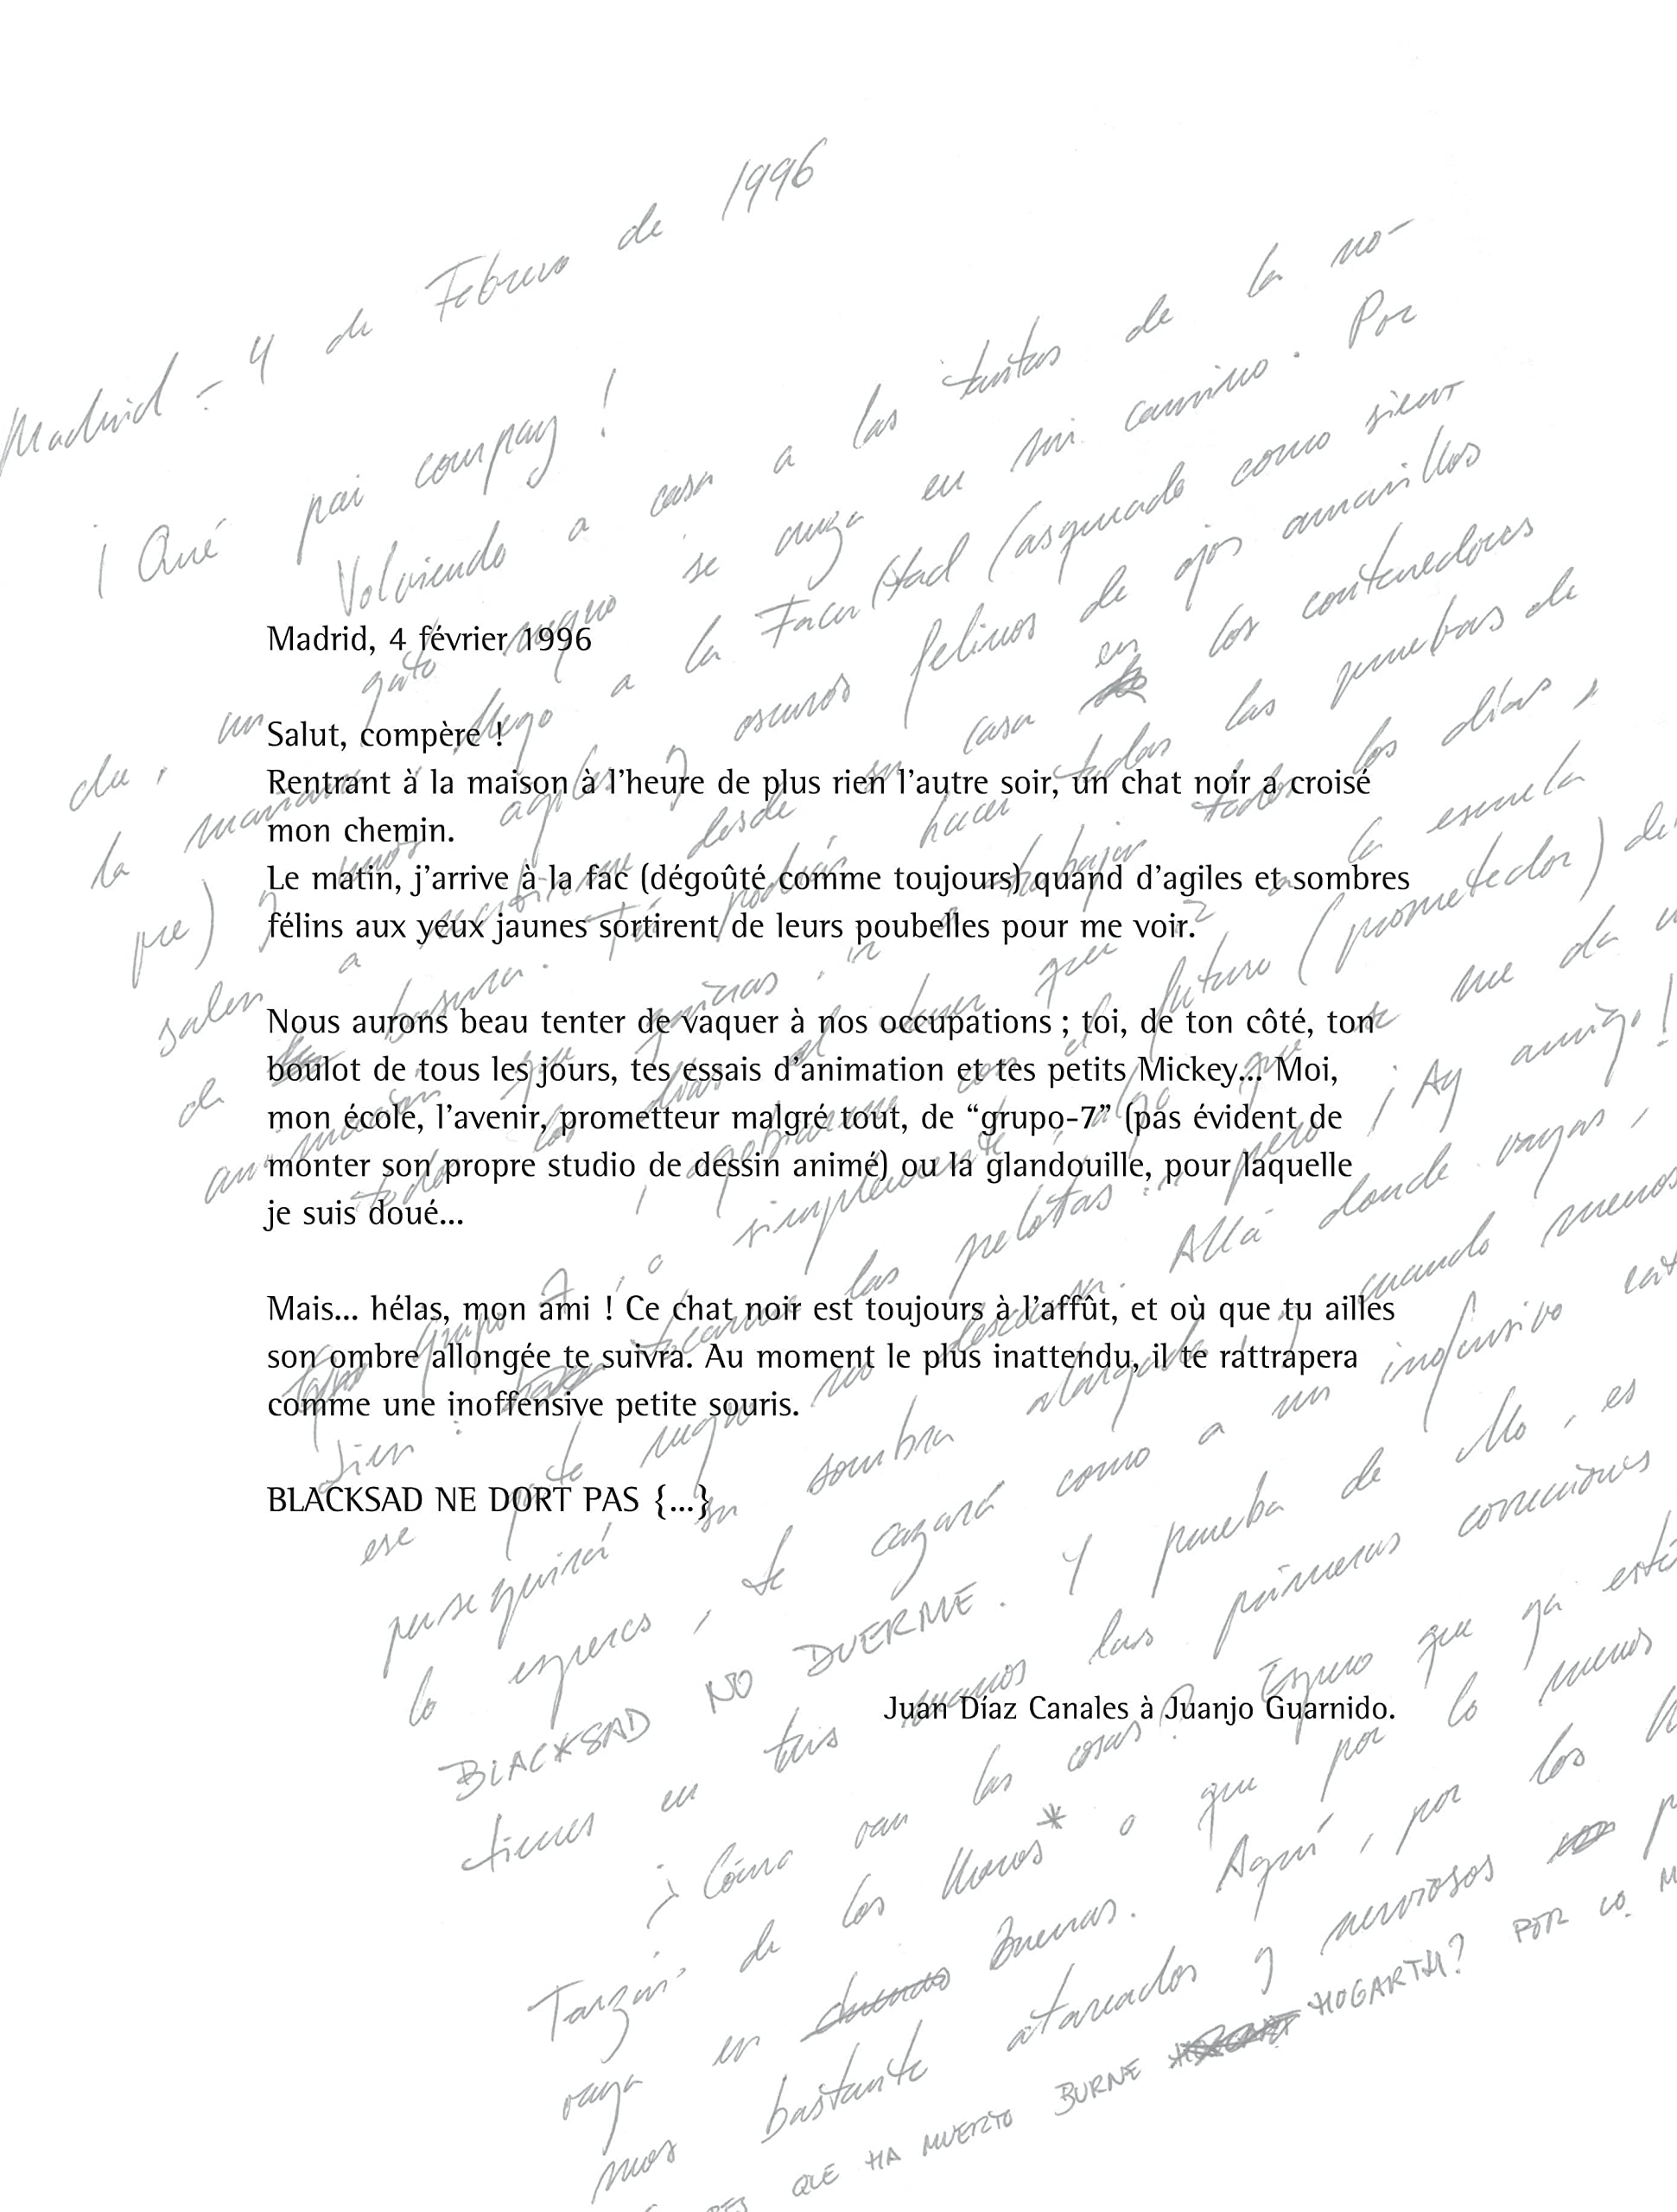 Madrid, 4 février 1996
Salut, compère !
Rentrant à la maison à l’heure de plus rien l’autre soir, un chat noir a croisé
mon chemin.
Le matin, j’arrive à la fac (dégoûté comme toujours) quand d’agiles et sombres
félins aux yeux jaunes sortirent de leurs poubelles pour me voir.
Nous aurons beau tenter de vaquer à nos occupations ; toi, de ton côté, ton
boulot de tous les jours, tes essais d’animation et tes petits Mickey... Moi,
mon école, l’avenir, prometteur malgré tout, de “grupo-7” (pas évident de
monter son propre studio de dessin animé) ou la glandouille, pour laquelle
je suis doué...
Mais... hélas, mon ami ! Ce chat noir est toujours à l’affût, et où que tu ailles
son ombre allongée te suivra. Au moment le plus inattendu, il te rattrapera
comme une inoffensive petite souris.
BLACKSAD NE DORT PAS {...}
Juan Díaz Canales à Juanjo Guarnido.
Madrid - 4 de Febrero de 1996
¡Qué pai compay!
Volviendo a casa a las tantas de la no-
che, un gato negro se cruza en mi camino. Por
la mañana, llego a la Facultad (asqueado como siem
pre) y unos agiles y oscuros felinos de ojos amarillos
salen a desde su casa en los contenedores
de basura. Tú podrás hacer todas las pruebas de
animación que quieras, ir a trabajar todos los días,
todos los días a la escuela
grupo 7, o simplemente tocarme las pelotas pero ¡Ay amigo!
ese gato negro no descansa. Allá donde vayas,
perseguirá su sombra alargada, y cuando menos
lo esperes, te cazará como a un inofensivo
BLACKSAD NO DUERME. Y prueba de ello, es
tienes en tus manos las primeras correcciones
¿Cómo van las cosas? Espero que ya esté
Tarzán de los Monos* o que por lo menos
vaya en buenas. Aquí, por los
mos bastante atareados y nerviosos
QUE HA MUERTO BURNE HOGARTH? POR LO